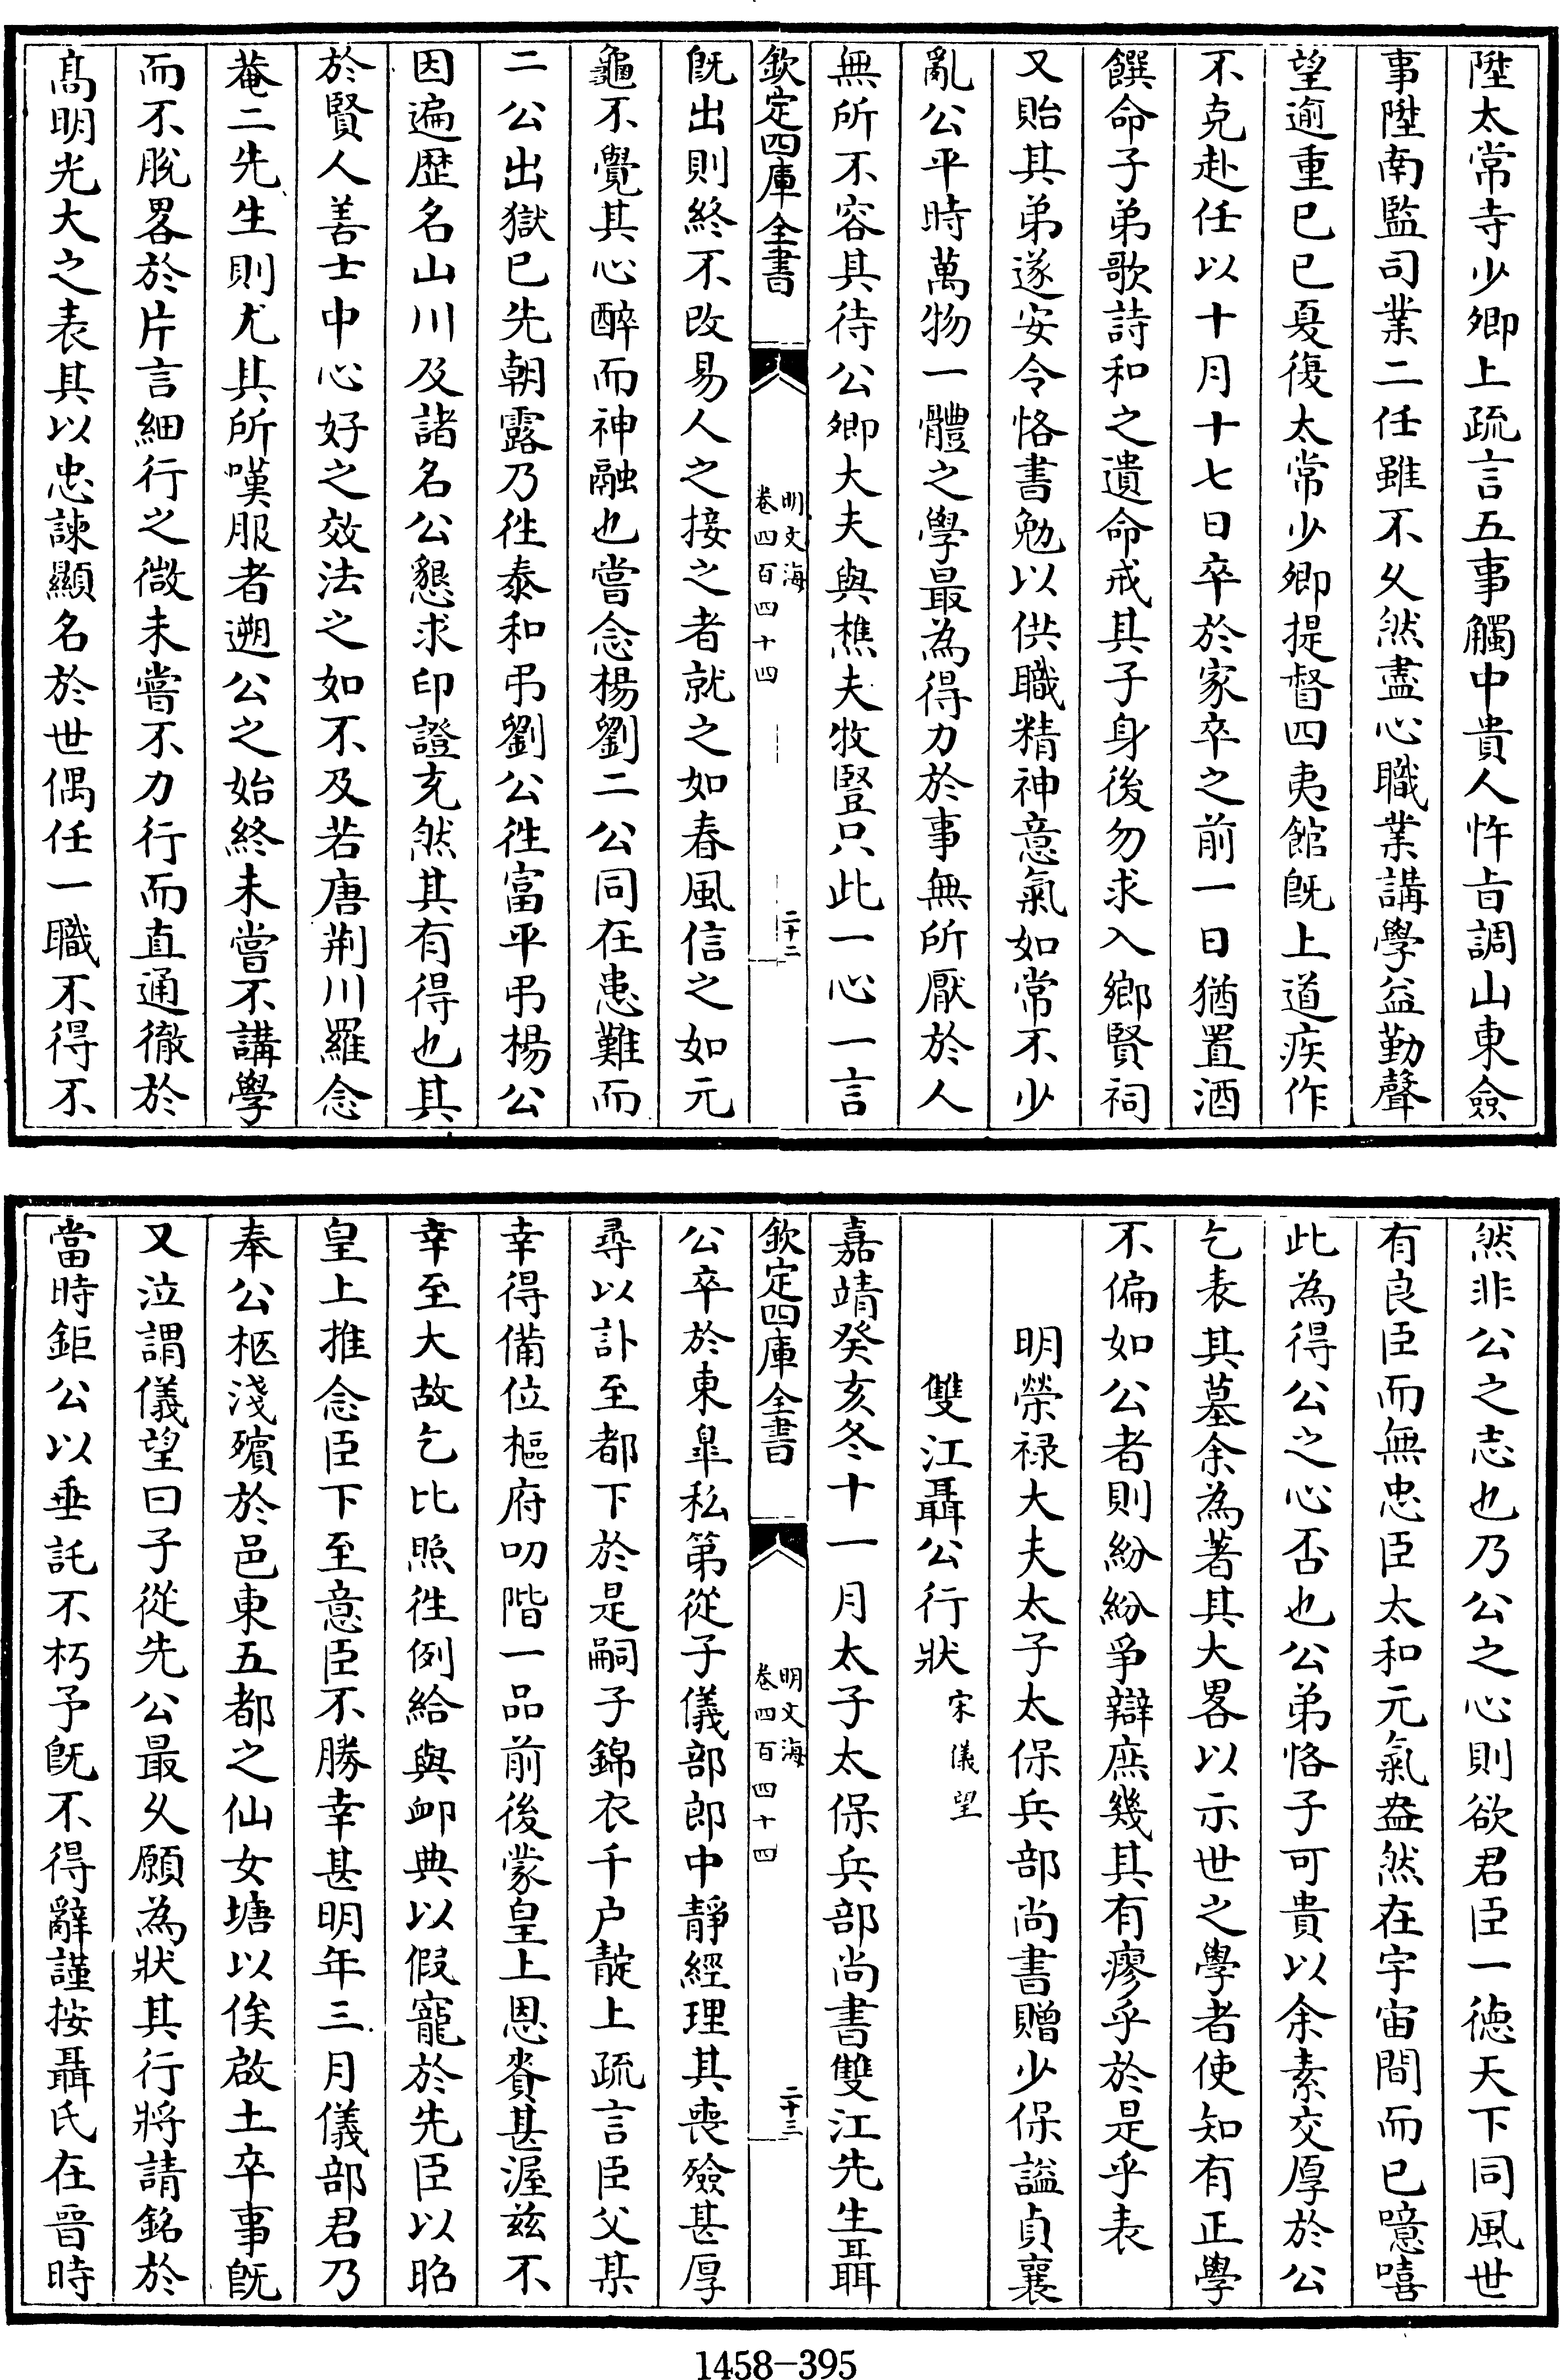 陞太常寺少卿上疏言五事觸中貴人忤㫖調山東僉
事陞南監司業二任雖不乆然盡心職業講學益勤聲
望逾重已巳夏復太常少卿提督四夷館旣上道疾作
不克赴任以十月十七日卒於家卒之前一日猶置酒
饌命子弟歌詩和之遺命戒其子身後勿求入鄉賢祠
又貽其弟遂安令恪書勉以供職精神意氣如常不少
亂公平時萬物一體之學最為得力於事無所厭於人
無所不容其待公卿大夫與樵夫牧豎只此一心一言
欽定四庫全書
明文海
卷四百四十四
二十二
旣出則終不改易人之接之者就之如春風信之如元
龜不覺其心醉而神融也嘗念楊劉二公同在患難而
二公出獄已先朝露乃徃泰和弔劉公徃富平弔楊公
因遍歴名山川及諸名公懇求印證充然其有得也其
於賢人善士中心好之效法之如不及若唐荆川羅念
菴二先生則尤其所嘆服者遡公之始終未嘗不講學
而不脫畧於片言細行之微未嘗不力行而直通徹於
髙明光大之表其以忠諫顯名於世偶任一職不得不
然非公之志也乃公之心則欲君臣一徳天下同風世
有良臣而無忠臣太和元氣盎然在宇宙間而已噫嘻
此為得公之心否也公弟恪子可貴以余素交厚於公
乞表其墓余為著其大畧以示世之學者使知有正學
不偏如公者則紛紛爭辯庶幾其有瘳乎於是乎表
明榮禄大夫太子太保兵部尚書贈少保諡貞襄
雙江聶公行狀 宋儀望
嘉靖癸亥冬十一月太子太保兵部尚書雙江先生聶
欽定四庫全書
明文海
卷四百四十四
二十三
公卒於東臯私第從子儀部郎中靜經理其喪殮甚厚
尋以訃至都下於是嗣子錦衣千户靛上疏言臣父某
幸得備位樞府叨階一品前後蒙皇上恩賚甚渥兹不
幸至大故乞比照徃例給與卹典以假寵於先臣以昭
皇上推念臣下至意臣不勝幸甚明年三月儀部君乃
奉公柩淺殯於邑東五都之仙女塘以俟啟土卒事旣
又泣謂儀望曰子從先公最乆願為狀其行將請銘於
當時鉅公以垂託不朽予旣不得辭謹按聶氏在晉時
1458-395